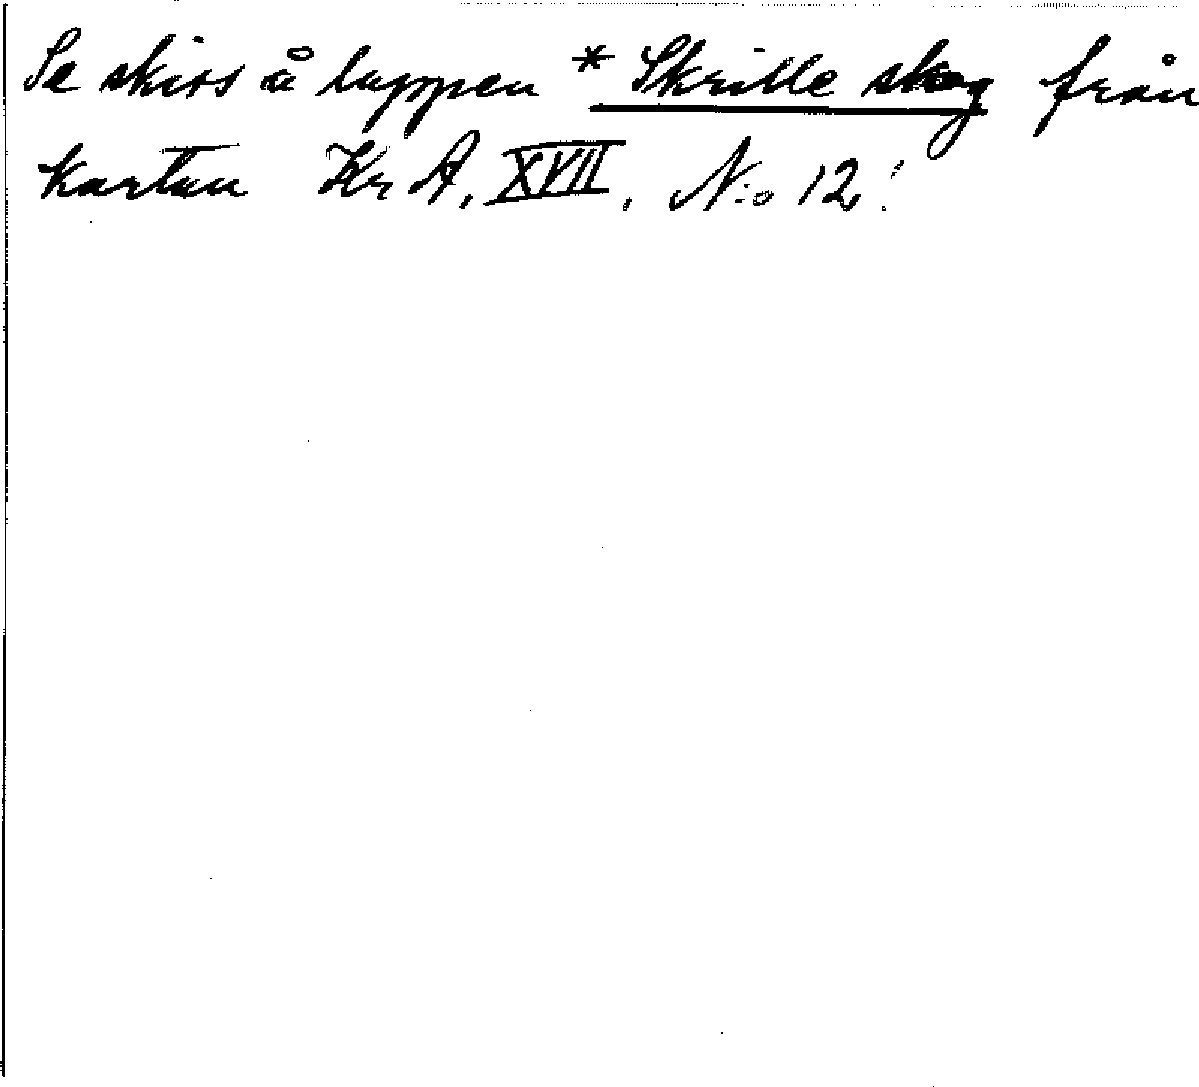 Se skiss å lappen * Skrille skog från
kartan Kr A, XVII, N:o 12!